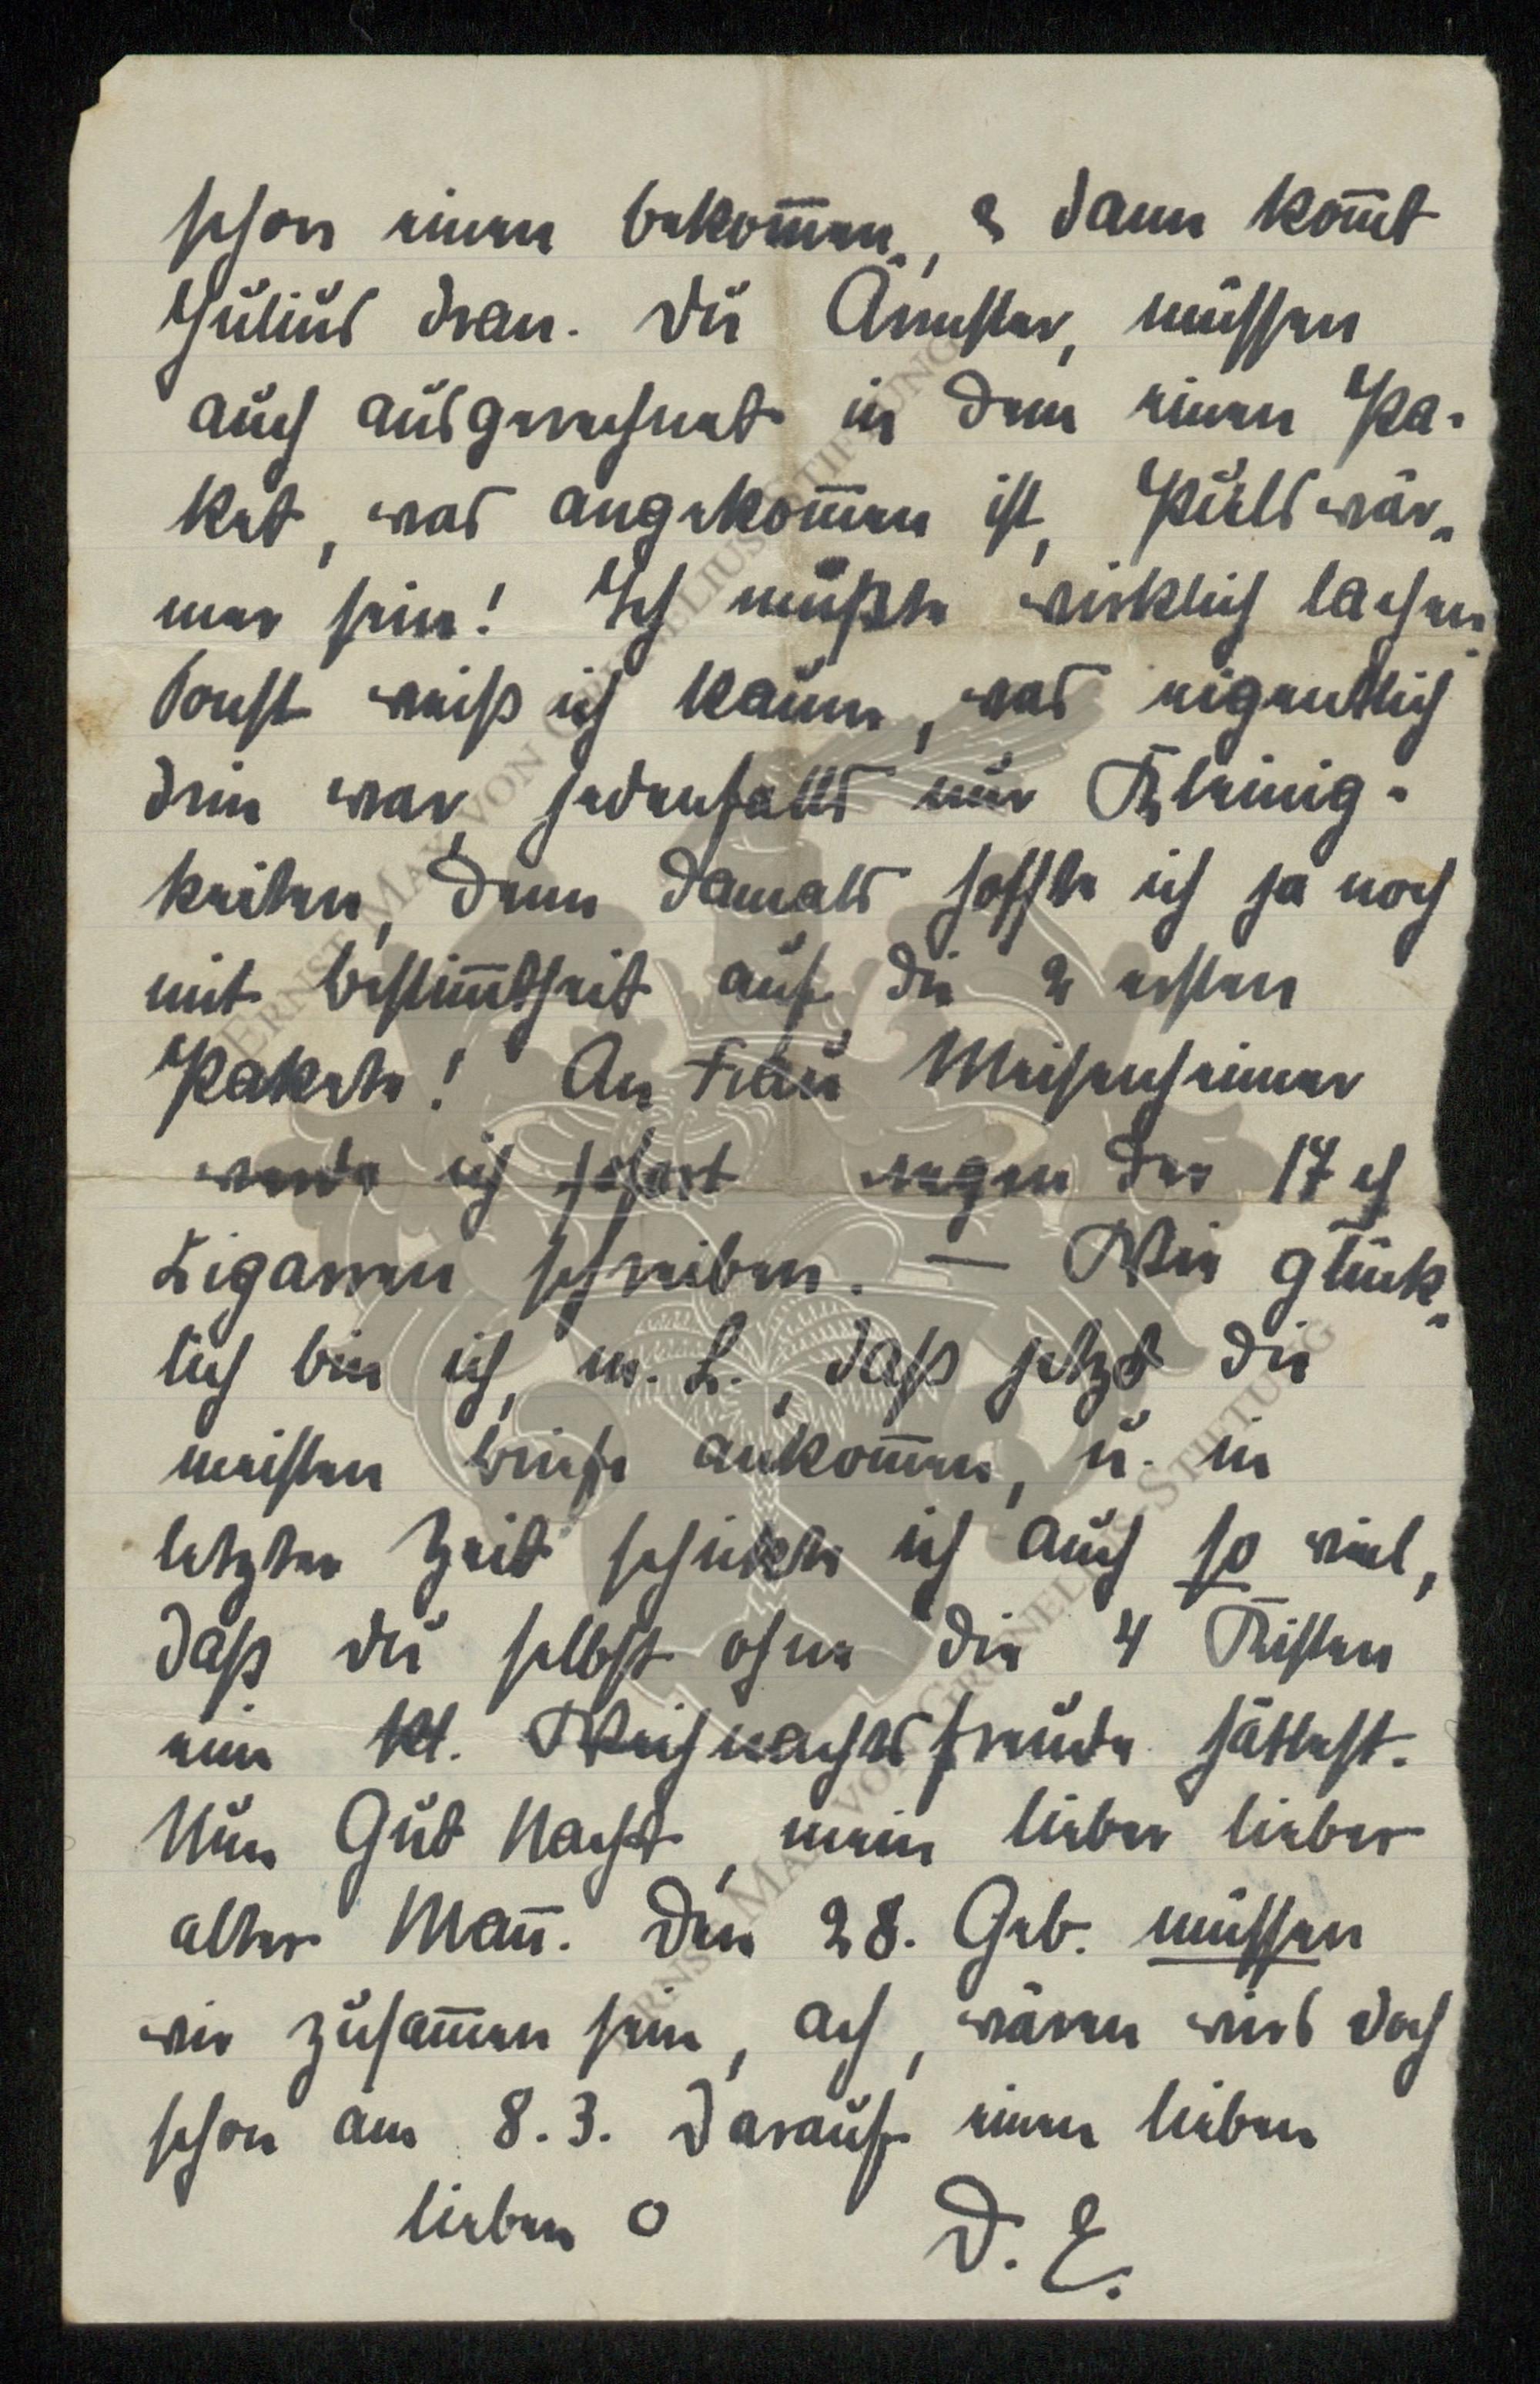 schon einen bekom̅en, & dann kom̅t
Julius dran. Du Ärmster, müssen
auch ausgerechnet in dem einen Pa-
ket, was angekom̅en ist, Pulswär-
mer sein! Ich mußte wirklich lachen.
Sonst weiß ich kaum, was eigentlich
drin war, jedenfalls nur Kleinig-
keiten, denn damals hoffte ich ja noch
mit Bestim̅theit auf die 2 ersten
Pakete! An Frau Meisenheimer
werde ich sofort wegen der 17
Zigarren schreiben. — Wie glück-
lich bin ich, m. L., daß jetzt die
meisten Briefe ankom̅en, u. in
letzter Zeit schickte ich auch so viel,
daß du selbst ohne die 4 Kisten
eine kl. Weihnachtsfreude hättest.
Nun Gut Nacht, mein lieber lieber
alter Man̅. Den 28. Geb. müssen
wir zusam̅en sein, ach, wären wirs doch
schon am 8.3. Darauf einen lieben
lieben O D. E.
ERNST MAX VON GRUNELIUS-STIFTUNG
ERNST MAX VON GRUNELIUS-STIFTUNG